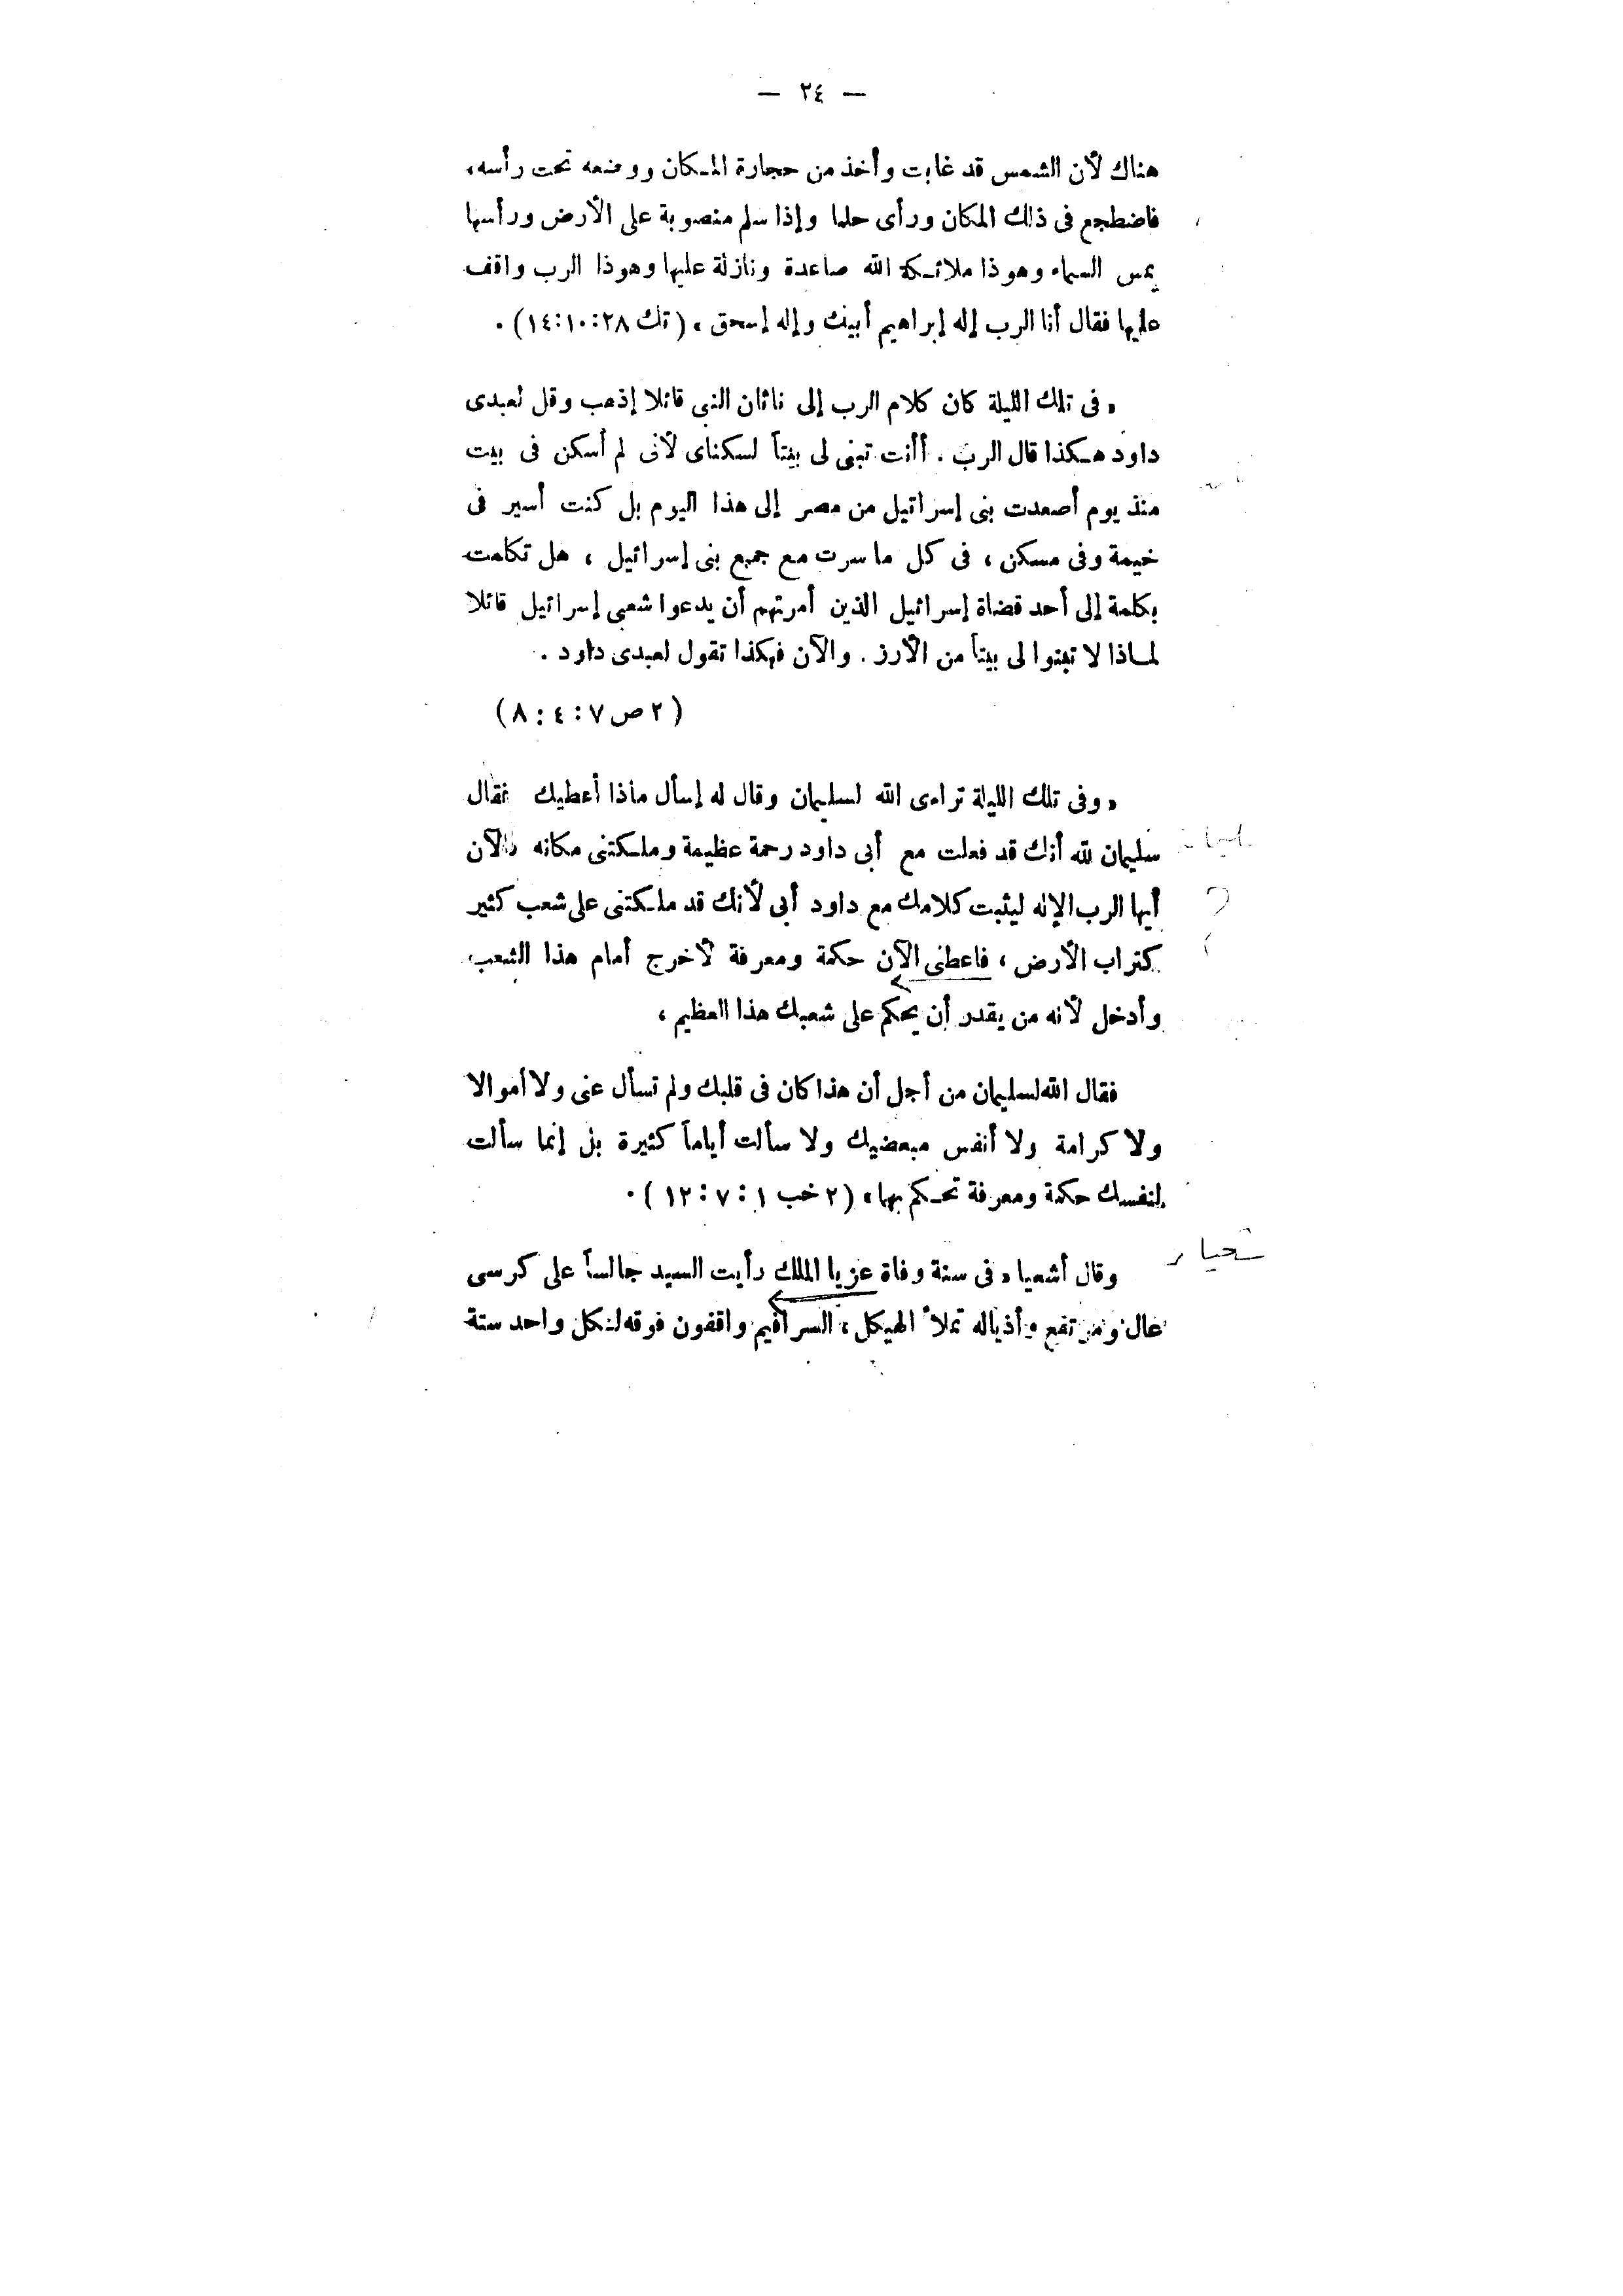 — ٢٤ —
هناك لأن الشمس قد غابت وأخذ من حجارة المكان ووضعه تحت رأسه،
فاضطجع فى ذلك المكان ورأى حلما وإذا سلم منصوبة على الأرض ورأسها
يمس السماء وهوذا ملائكة الله صاعدة ونازلة عليها وهوذا الرب واقف
عليها فقال أنا الرب إله إبراهيم أبيك وإله إسحق، (تك ٢٨:١٠:١٤) .
« فى تلك الليلة كان كلام الرب إلى ناثان النبى قائلا إذهب وقل لعبدى
داود هكذا قال الرب . أأنت تبنى لى بيتاً لسكناى لأنى لم أسكن فى بيت
منذ يوم أصعدت بنى إسرائيل من مصر إلى هذا اليوم بل كنت أسير فى
خيمة وفى مسكن ، فى كل ما سرت مع جميع بنى إسرائيل ، هل تكلمت
بكلمة إلى أحد قضاة إسرائيل الذين أمرتهم أن يدعوا شعبى إسرائيل قائلا
لماذا لا تبنوا لى بيتاً من الأرز . والآن فهكذا تقول لعبدى داود .
( ٢ ص ٧ : ٤ : ٨ )
« وفى تلك الليلة تراءى الله لسليمان وقال له إسأل ماذا أعطيك فقال
سليمان لله أنك قد فعلت مع أبى داود رحمة عظيمة وملكتنى مكانه فالآن
أيها الرب الإله ليثبت كلامك مع داود أبى لأنك قد ملكتنى على شعب كثير
كتراب الأرض ، فاعطنى الآن حكمة ومعرفة لأخرج أمام هذا الشعب،
وأدخل لأنه من يقدر أن يحكم على شعبك هذا العظيم ،
فقال الله لسليمان من أجل أن هذا كان فى قلبك ولم تسأل غنى ولا أموالا
ولا كرامة ولا أنفس مبغضيك ولا سألت أياماً كثيرة بل إنما سألت
لنفسك حكمة ومعرفة تحكم بها » ( ٢ خب ١ : ٧ : ١٢ ) .
وقال أشعيا « فى سنة وفاة عزيا الملك رأيت السيد جالساً على كرسى
عال ومرتفع وأذياله تملأ الهيكل ، السرافيم واقفون فوقه لكل واحد ستة